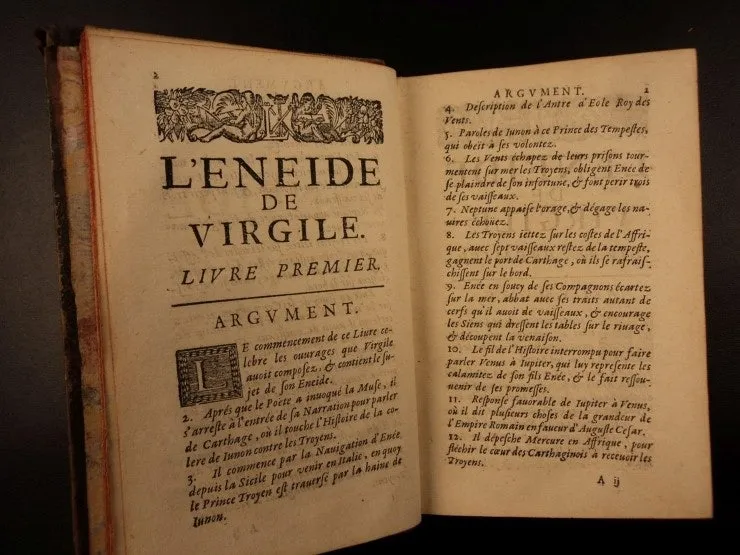 2
L'ENEIDE
DE
VIRGILE.
LIVRE PREMIER.
ARGVMENT.
LE commencement de ce Livre ce-
lebre les ouvrages que Virgile
auoit composez, & contient le su-
jet de son Eneide.
2. Aprés que le Poëte a inuoqué la Muse, il
s'arreste à l'entrée de sa Narration pour parler
de Carthage, où il touche l'Histoire de la co-
lere de Iunon contre les Troyens.
3. Il commence par la Navigation d'Enée
depuis la Sicile pour venir en Italie, en quoy
le Prince Troyen est trauersé par la haine de
Iunon.
ARGVMENT. 2
4. Description de l'Antre d'Eole Roy des
Vents.
5. Paroles de Iunon à ce Prince des Tempestes,
qui obeït à ses volontez.
6. Les Vents échapez de leurs prisons tour-
mentent sur mer les Troyens, obligent Enée de
se plaindre de son infortune, & font perir trois
de ses vaisseaux.
7. Neptune appaise l'orage, & dégage les na-
uires échoüez.
8. Les Troyens iettez sur les costes de l'Affri-
que, auec sept vaisseaux restez de la tempeste,
gagnent le port de Carthage, où ils se rafrais-
chissent sur le bord.
9. Enée en soucy de ses Compagnons écartez
sur la mer, abbat avec ses traits autant de
cerfs qu'il auoit de vaisseaux, & encourage
les Siens qui dressent les tables sur le riuage,
& découpent la venaison.
10. Le fil de l'Histoire interrompu pour faire
parler Venus à Iupiter, qui luy represente les
calamitez de son fils Enée, & le fait ressou-
uenir de ses promesses.
11. Response fauorable de Iupiter à Venus,
où il dit plusieurs choses de la grandeur de
l'Empire Romain en faueur d'Auguste Cesar.
12. Il dépesche Mercure en Affrique, pour
fléchir le cœur des Carthaginois à receuoir les
Troyens.
A ij